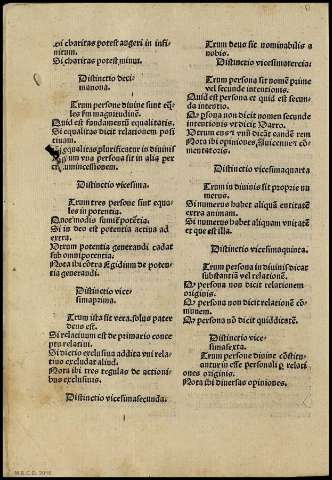 Si charitas potest augeri in infi-
nitum.
Si charitas potest minui.
Distinctio deci-
manona.
Utrum persone divine sunt eq̃-
les fm magnitudinē.
Quid est fundamentū equalitatis.
Si equalitas dicit relationem posi
tiuam.
Si equalitas plurificatur in diuinis
vna persona sit in aliq̄ per
circumincessionem.
Distinctio vicesima.
Utrum tres persone sint equa-
les in potentia.
Quot modis sumit̃ potētia.
Si in deo est potentia actiua ad
extra.
Utrum potentia generandi cadat
sub omnipotentia.
Nota ibi cōtra Egidium de poten-
tia generandi.
Distinctio vice-
simaprima.
Utrum ista sit vera. solus pater
deus est.
Si relatiuum est de primario conce
ptu relatiui.
Si dictio exclusiua addita vni rela-
tiuo excludat aliud.
Nota ibi tres regulas de actioni-
bus exclusiuis.
Distinctio vicesimasecunda.
Utrum deus sit nominabilis a
nobis.
Distinctio vicesimatercia.
Utrum persona sit nomē prime
vel secunde intentionis.
Quid est persona et quid est secun-
da intentio.
Q̃ psona non dicit nomen secunde
intentionis vt dicit Varro.
Utrum ens et vnū dicāt eandē rem
Nota ibi opiniones, Auicenne et cō-
mentatoris.
Distinctio vicesimaquarta
Utrum in diuinis sit proprie nu-
merus.
Si numerus habet aliquā entitatē
extra animam.
Si numerus habet aliquam vnitatē
et que est illa.
Distinctio vicesimaquinta.
Utrum persona in diuinis dicat
substantiā vel relationē.
Q̃ persona non dicit relationem
originis.
Q̃ persona non dicit relationē cō-
munem.
Q̃ persona nō dicit quidditatē.
Distinctio vice-
simasexta.
Utrum persone diuine cōstitu-
antur in esse personali p̱ relati
ones originis.
Nota ibi diuersas opiniones.